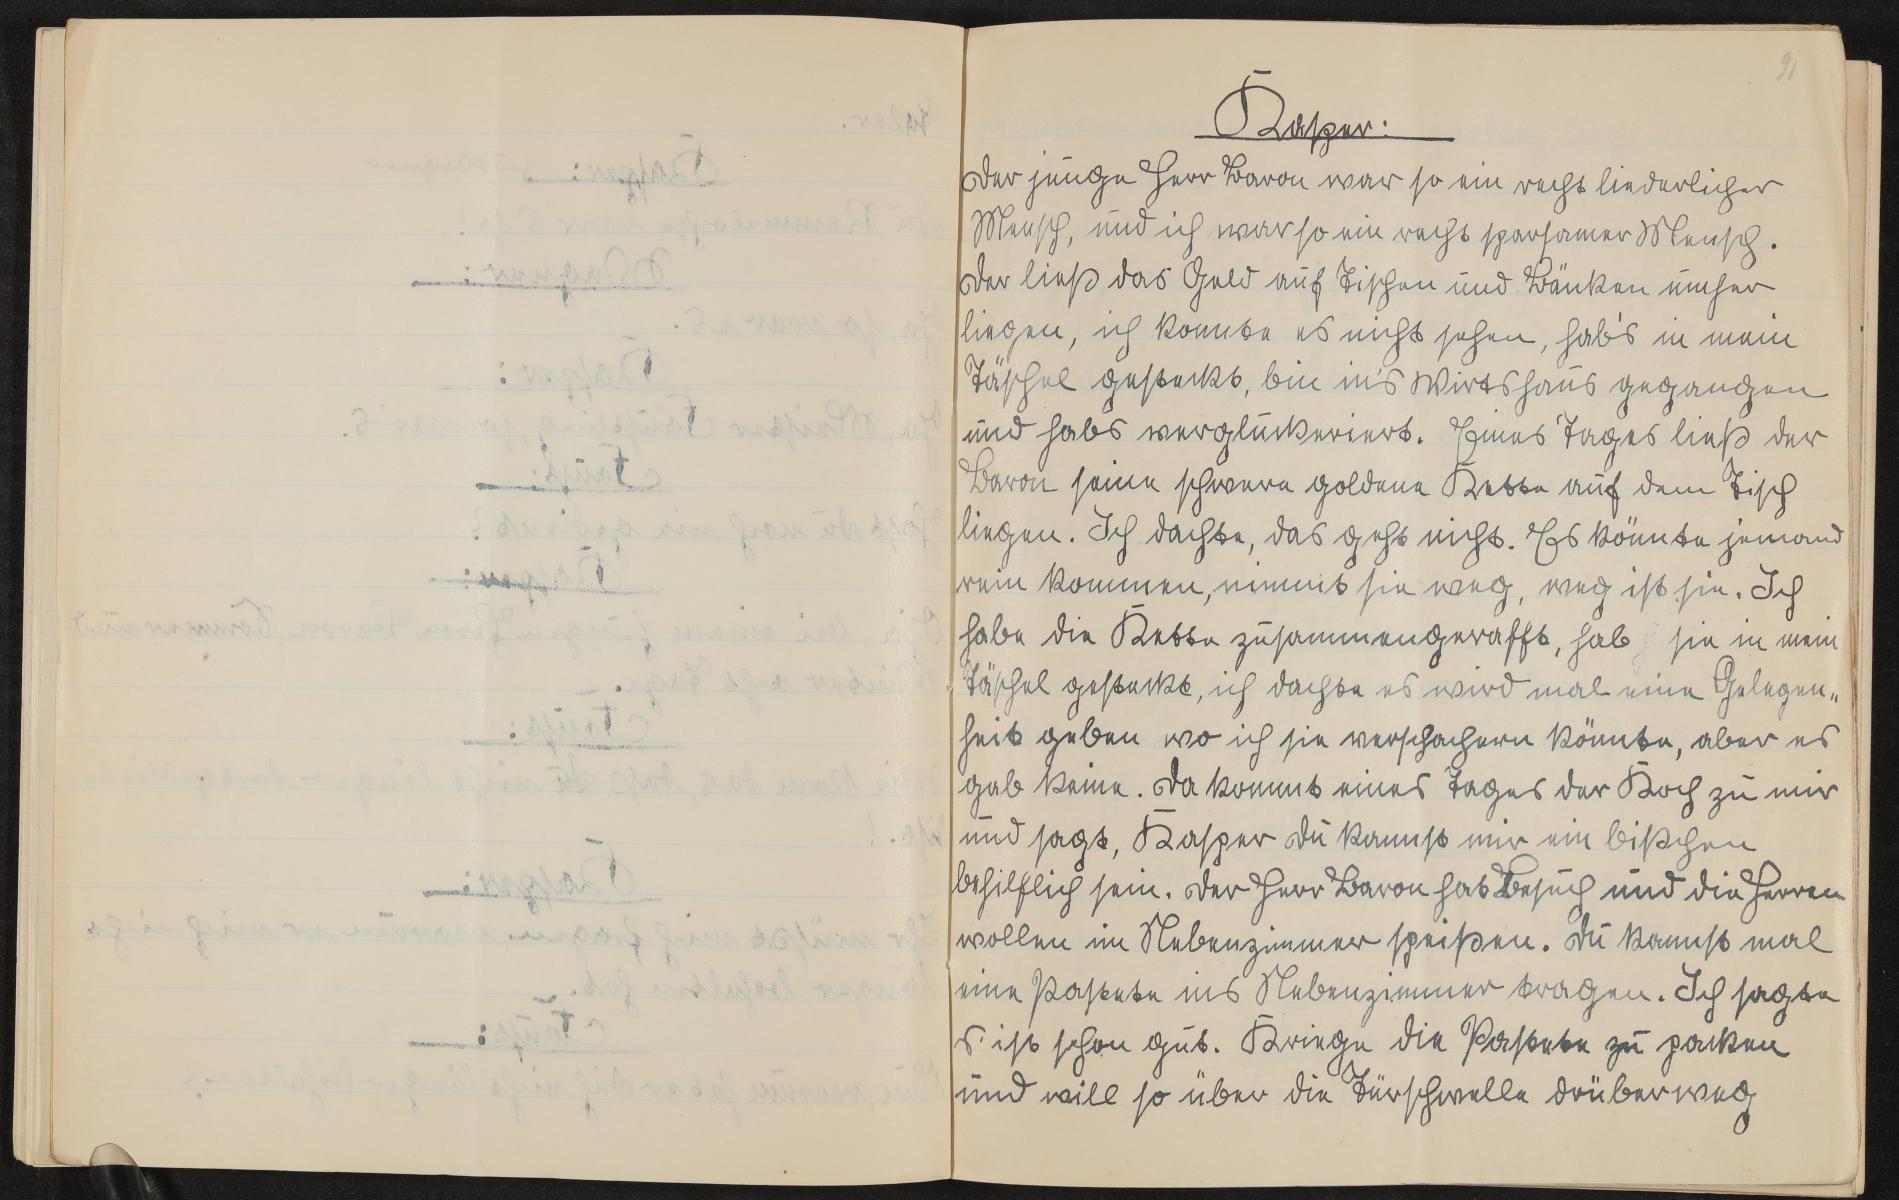 91
Kasper:
Der junge Herr Baron war so ein recht liederlicher
Mensch, und ich war so ein recht sparsamer Mensch.
Der ließ das Geld auf Tischen und Bänken umher
liegen, ich konnte es nicht sehen, hab's in mein
Täschel gesteckt, bin in's Wirtshaus gegangen
und habs verglückeriert. Eines Tages ließ der
Baron seine schwere goldene Kette auf dem Tisch
liegen. Ich dachte, das geht nicht. Es könnte jemand
rein kommen, nimmt sie weg, weg ist sie. Ich
habe die Kette zusammengerafft, hab sie in mein
Täschel gesteckt, ich dachte es wird mal eine Gelegen„
heit geben wo ich sie verschachern könnte, aber es
gab keine. Da kommt eines Tages der Koch zu mir
und sagt, Kasper du kannst mir ein bißchen
behilflich sein. Der Herr Baron hat Besuch und die Herren
wollen im Nebenzimmer speißen. Du kannst mal
eine Pastete ins Nebenzimmer tragen. Ich sagte
s' ist schon gut. Kriege die Pastete zu packen
und will so über die Türschwelle drüberweg